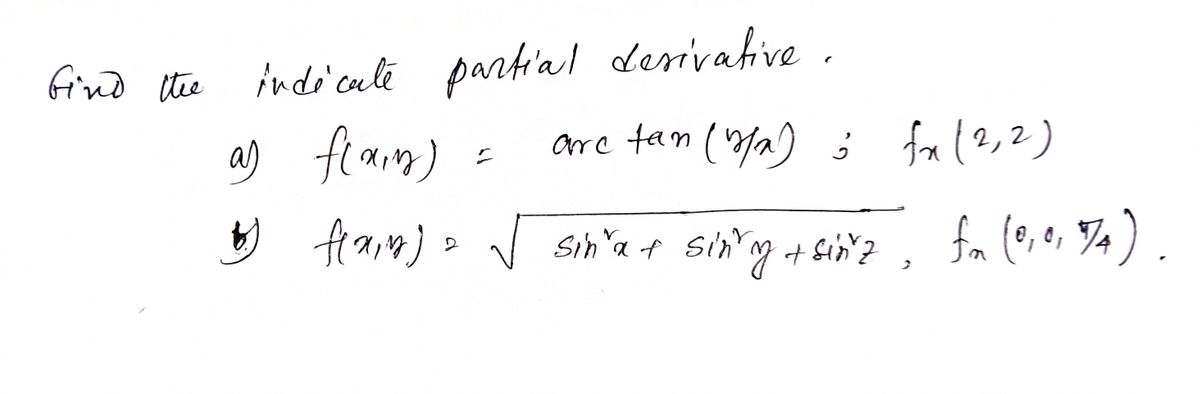 Find the indicate partial derivative.
a) f(x,y) = arc tan (y/x) ; fx (2,2)
b) f(x,y) = √ sin²x + sin²y + sin²z , fx (0, 0, π/4) .